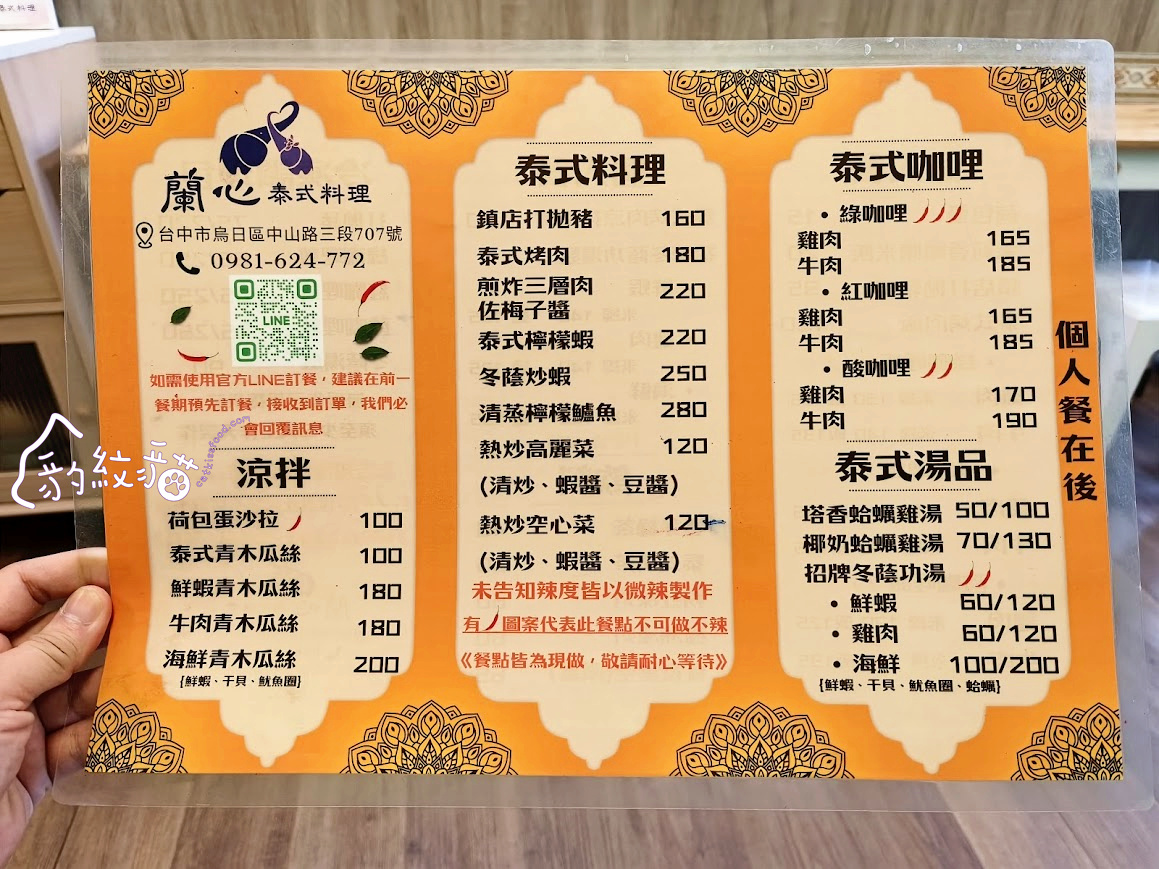 泰式料理
蘭心 泰式料理
台中市烏日區中山路三段707號
0981-624-772
LINE
如需使用官方LINE訂餐，建議在前一
餐期預先訂餐，接收到訂單，我們必
會回覆訊息
涼拌
荷包蛋沙拉 100
泰式青木瓜絲 100
鮮蝦青木瓜絲 180
牛肉青木瓜絲 180
海鮮青木瓜絲 200
{鮮蝦、干貝、魷魚圈}
泰式料理
鎮店打拋豬 160
泰式烤肉 180
煎炸三層肉 220
佐梅子醬
泰式檸檬蝦 220
冬蔭炒蝦 250
清蒸檸檬鱸魚 280
熱炒高麗菜 120
(清炒、蝦醬、豆醬)
熱炒空心菜 120
(清炒、蝦醬、豆醬)
未告知辣度皆以微辣製作
有圖案代表此餐點不可做不辣
《餐點皆為現做，敬請耐心等待》
泰式咖哩
• 綠咖哩
雞肉 165
牛肉 185
• 紅咖哩
雞肉 165
牛肉 185
• 酸咖哩
雞肉 170
牛肉 190
泰式湯品
塔香蛤蠣雞湯 50/100
椰奶蛤蠣雞湯 70/130
招牌冬蔭功湯
• 鮮蝦 60/120
• 雞肉 60/120
• 海鮮 100/200
{鮮蝦、干貝、魷魚圈、蛤蠣}
個人餐在後
豹紋貓